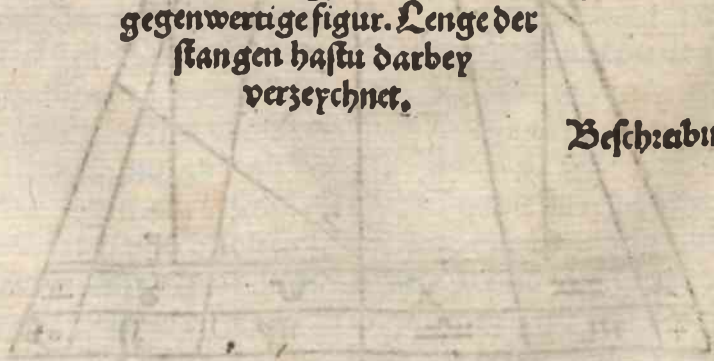 gegenwertige figur. Lenge der
stangen hastu darbey
verzeychnet.